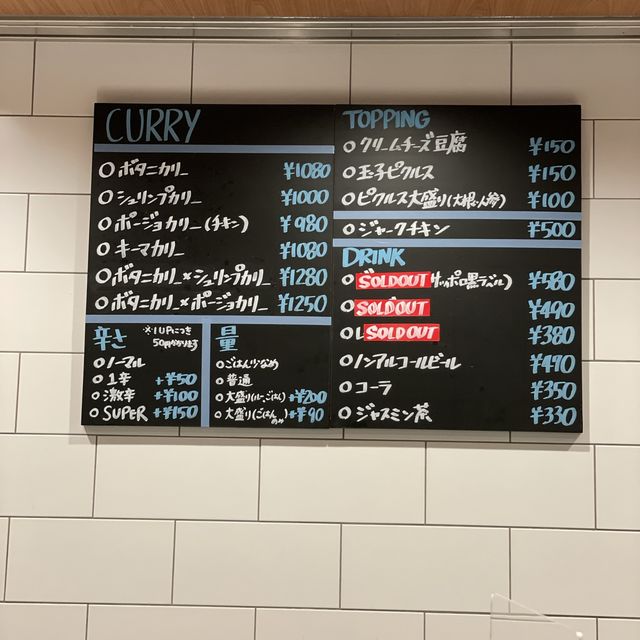 CURRY
○ボタニカリー ¥1080
○シュリンプカリー ¥1000
○ポージョカリー(チキン) ¥980
○キーマカリー ¥1080
○ボタニカリー×シュリンプカリー ¥1280
○ボタニカリー×ポージョカリー ¥1250
辛さ ※1UPにつき
50円かかります
○ノーマル
○1辛 +¥50
○激辛 +¥100
○SUPER +¥150
量
○ごはん少なめ
○普通
○大盛り(ルー・ごはん) +¥200
○大盛り(ごはんのみ) +¥90
TOPPING
○クリームチーズ豆腐 ¥150
○玉子ピクルス ¥150
○ピクルス大盛り(大根・人参) ¥100
○ジャークチキン ¥500
DRINK
○ SOLD OUT サッポロ黒ラベル) ¥580
○ SOLD OUT ¥490
○ SOLD OUT ¥380
○ノンアルコールビール ¥490
○コーラ ¥350
○ジャスミン茶 ¥330